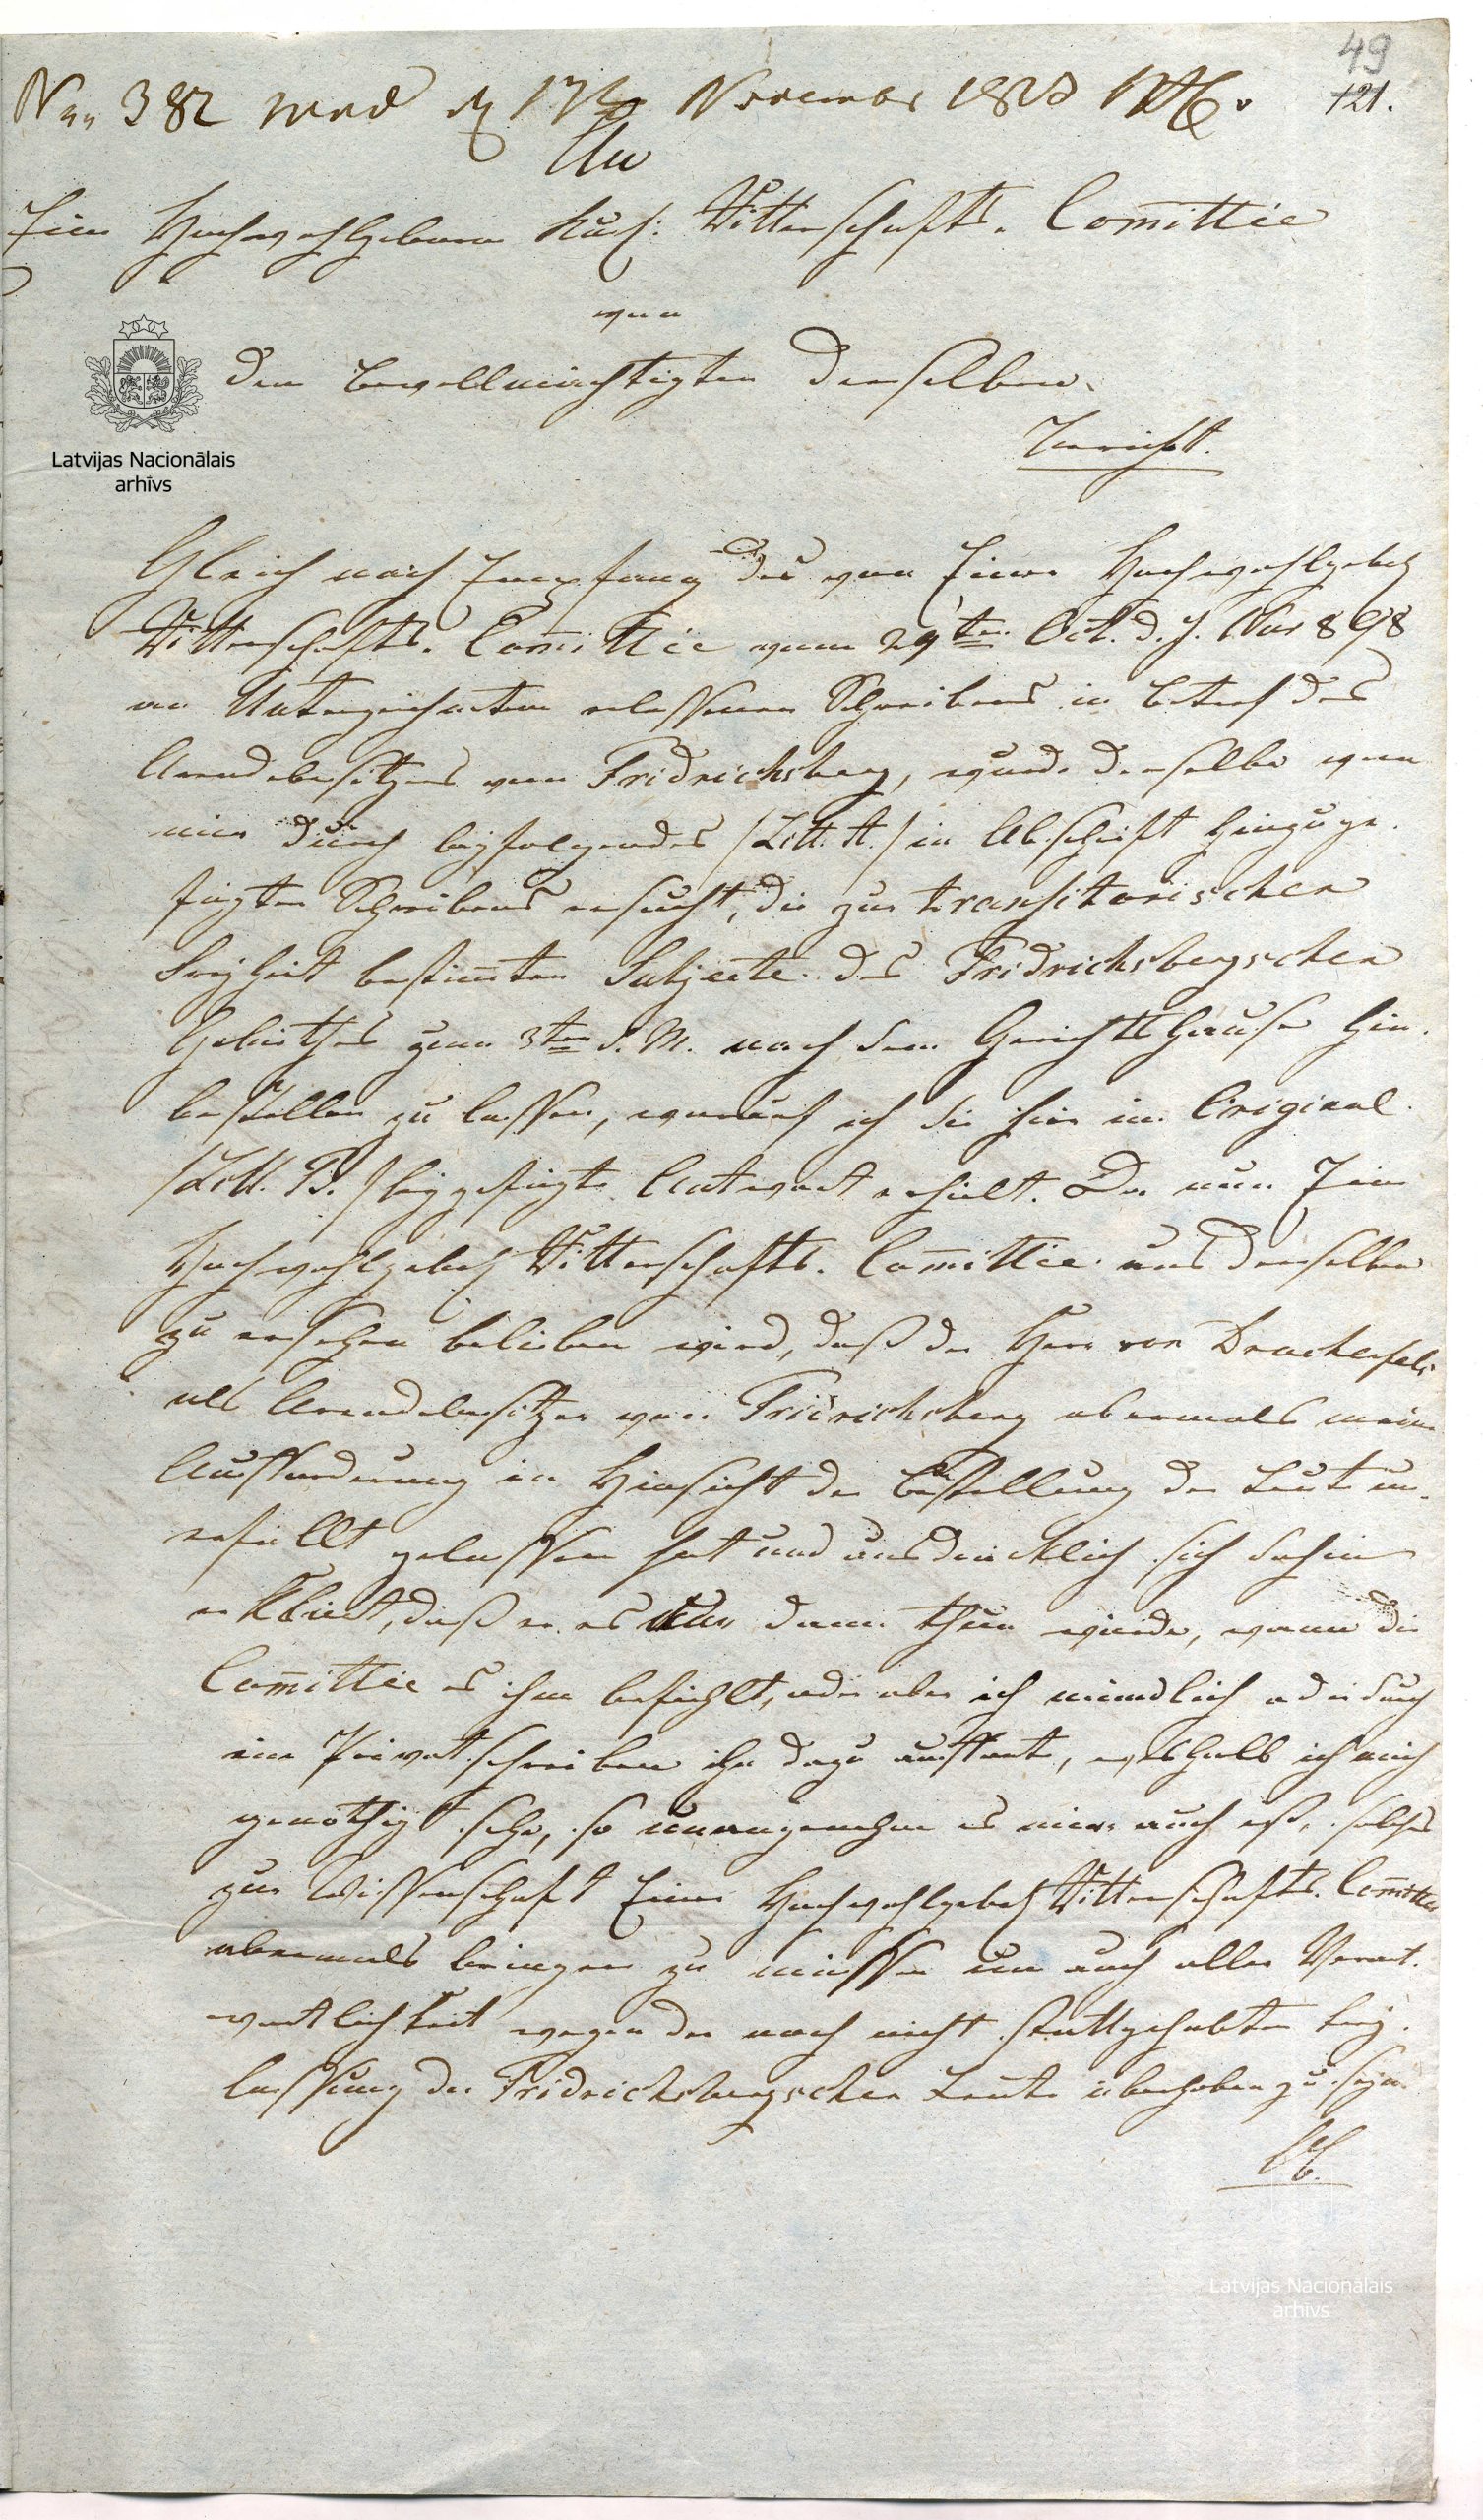 49
121.
Nro 382 prod d 17ten November 1823
An
Eine Hochwohlgeborne Kurl: Ritterschafts. Com̄ittée
von
dem Bevollmächtigten derselben.
Latvijas Nacionālais
arhīvs
Bericht.
Gleich nach Empfang des von Einer Hochwohlgeb
Ritterschafts. Com̄ittée vom 29ten Oct. d. J. Nro 898
an Unterzeichneten erlassenen Schreibens in Betref des
Arendebesitzers von Fridrichsberg, wurde derselbe von
mir durch beyfolgendes /Litt. A./ in Abschrift hinzuge.
fügten Schreibens ersucht, die zur transitorischen
Freyheit bestim̄ten Subjecte des Fridrichsbergschen
Gebiethes zum 3ten d. M. nach dem Gerichtshause hin.
bestellen zu lassen, worauf ich die hier im Original
/Litt. B./ beygefügte Antwort erhielt. Da nun Eine
Hochwohlgeb Ritterschafts. Com̄ittée aus derselben
zu ersehen belieben wird, daß der Herr von Drachenfels
als Arendebesitzer von Fridrichsberg abermals meine
Aufforderung in Hinsicht der Bestellung der Leute un.
erfüllt gelassen hat und ausdrücklich sich dahin
erklärt, daß er es nur dann thun würde, wenn die
Com̄ittée es ihm befiehlt, oder aber ich mündlich oder durch
ein Privatschreiben ihn dazu auffordte, weshalb ich mich
genöthigt sehe, so unangenehm es mir auch ist, solches
zur Wissenschaft Einer Hochwohlgeb Ritterschafts. Com̄ittée
abermals bringen zu müssen um auch aller Verant.
wortlichkeit wegen der noch nicht stattgehabten Frey.
lassung der Fridrichsbergschen Leute überhoben zu seyn.
Latvijas Nacionālais
arhīvs